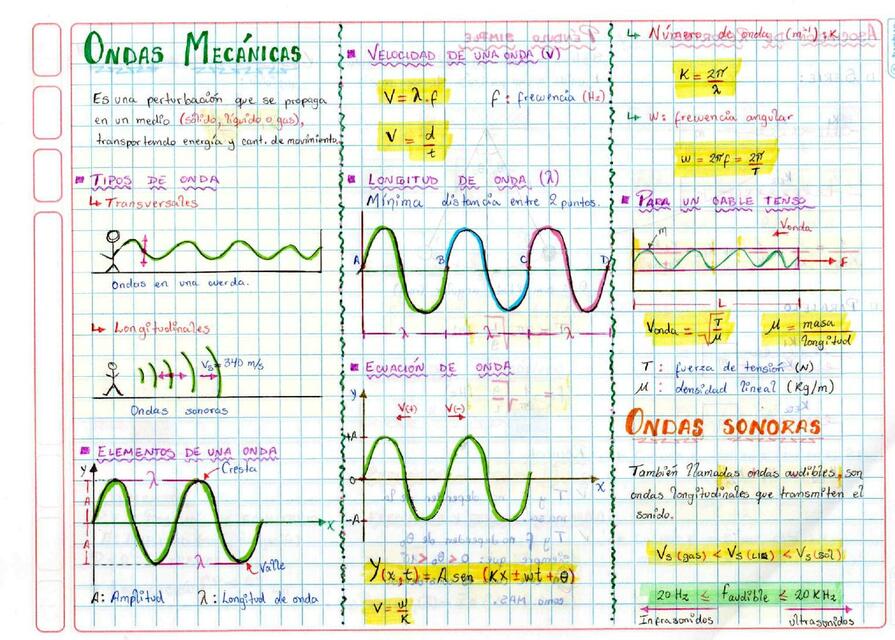 ONDAS MECÁNICAS
Es una perturbación que se propaga
en un medio (sólido, líquido o gas),
transportando energía y cant. de movimiento.
TIPOS DE ONDA
Transversales
Ondas en una cuerda.
Longitudinales
Vs = 340 m/s
Ondas sonoras
ELEMENTOS DE UNA ONDA
y
λ
Cresta
A
x
A
λ
Valle
A: Amplitud λ: Longitud de onda
VELOCIDAD DE UNA ONDA (V)
V = λ.f f: frecuencia (Hz)
V = d/t
LONGITUD DE ONDA (λ)
Mínima distancia entre 2 puntos.
A B C D
λ λ λ
ECUACIÓN DE ONDA
y
V(+) V(-)
+A
0
x
-A
Y(x,t) = A sen (Kx ± wt + θ)
V = w/K
Número de onda (m⁻¹): K
K = 2π/λ
w: frecuencia angular
w = 2πf = 2π/T
PARA UN CABLE TENSO
Vonda
m
F
L
Vonda = √(T/μ) μ = masa/longitud
T: fuerza de tensión (N)
μ: densidad lineal (Kg/m)
ONDAS SONORAS
También llamadas ondas audibles, son
ondas longitudinales que transmiten el
sonido.
Vs (gas) < Vs (LIQ) < Vs (sol)
20 Hz ≤ faudible ≤ 20 KHz
Infrasonidos ultrasonidos